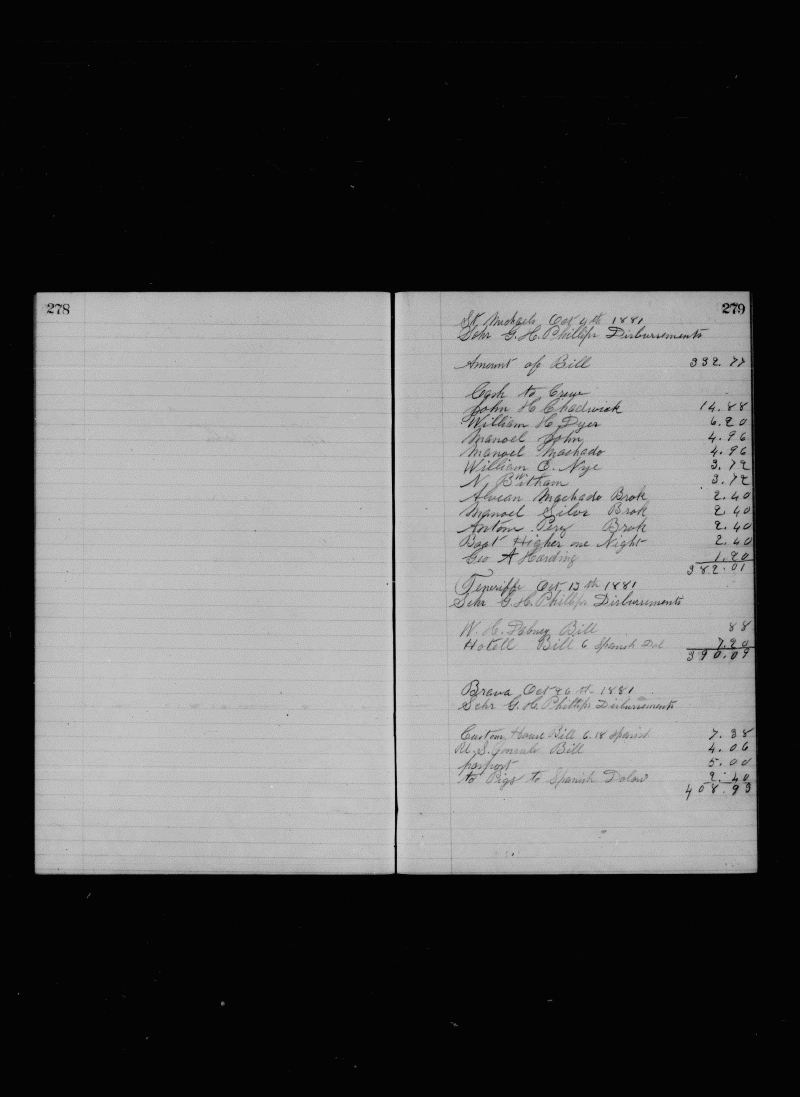 278
279
St Michaels Oct 4th 1881
Schr G. H. Phillips Disbursements
Amount of Bill 332.77
Cash to Crew
John H Chadwick 14.88
William H Dyer 6.20
Manoel John 4.96
Manoel Machado 4.96
William C. Nye 3.72
N. Witham 3.72
Machado Brok 2.40
Manoel Silva Brok 2.40
Antone Pery Brok 2.40
Boat Higher one Night 2.40
Geo A Harding 1.20
382.01
Teneriffe Oct 13th 1881
Schr G. H. Phillips Disbursements
W. H. Dabney Bill 88
Hotell Bill 6 Spanish Dol 7.20
390.09
Brava Oct 26th 1881
Schr G. H. Phillips Disbursements
Custom House Bill 6.18 Spanish 7.38
U. S. Consuls Bill 4.06
pasport 5.00
to Pigs to Spanish Dolars 2.40
408.93